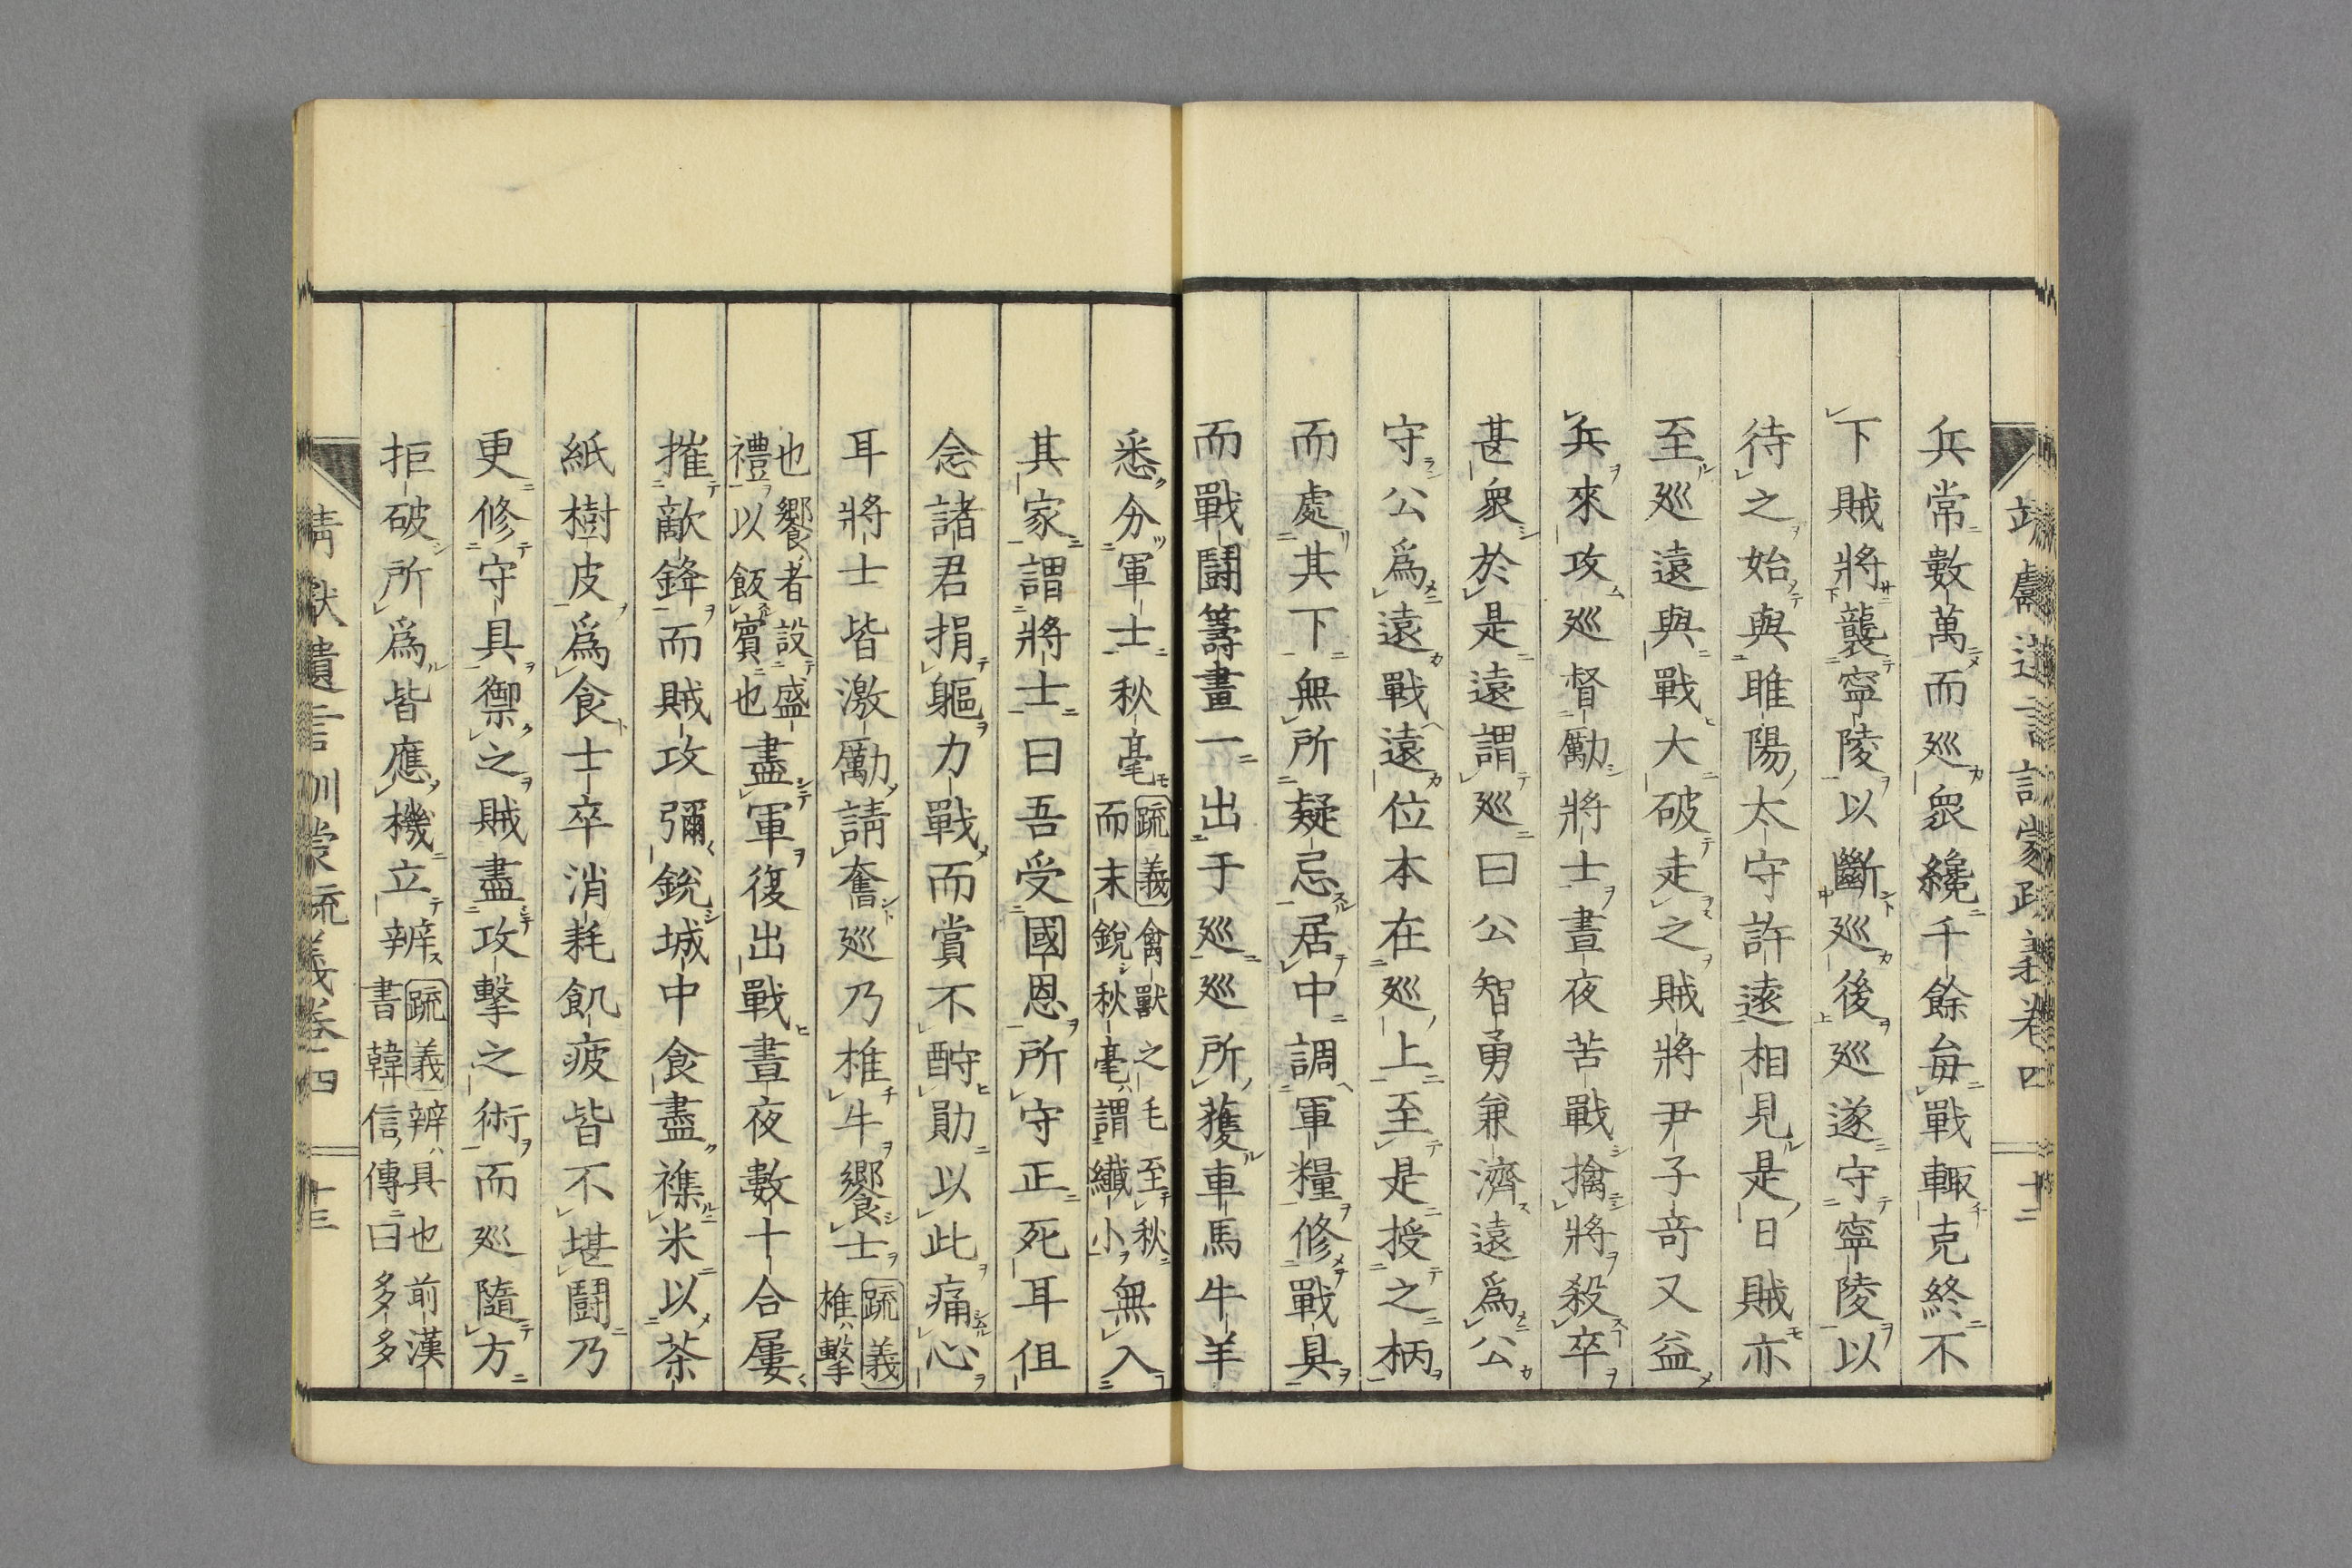 兵常數萬而巡衆纔千餘每戰輙克終不
下賊將襲寧陵以斷巡後巡遂守寧陵以
待之始與睢陽太守許遠相見是日賊亦
至巡遠與戰大破走之賊將尹子竒又益
兵來攻巡督勵將士晝夜苦戰擒將殺卒
甚衆於是遠謂巡曰公智勇兼濟遠爲公
守公爲遠戰遠位本在巡上至是授之柄
而處其下無所疑忌居中調軍糧修戰具
而戰鬪籌畫一出于巡巡所獲車馬牛羊
悉分軍士秋毫疏義禽獸之毛至秋而末銳秋毫謂纎小無入
其家謂將士曰吾受國恩所守正死耳但
念諸君捐軀力戰而賞不酧勛以此痛心
耳將士皆激勵請奮巡乃椎牛饗士疏義椎擊
也饗者設盛禮以飯賓也盡軍復出戰晝夜數十合屢
摧敵鋒而賊攻彌銳城中食盡襍米以茶
紙樹皮爲食士卒消耗飢疲皆不堪鬪乃
更修守具禦之賊盡攻擊之術而巡隨方
拒破所爲皆應機立辨疏義辨具也前漢書韓信傳曰多多
靖獻遺言訓蒙疏義卷四 十三